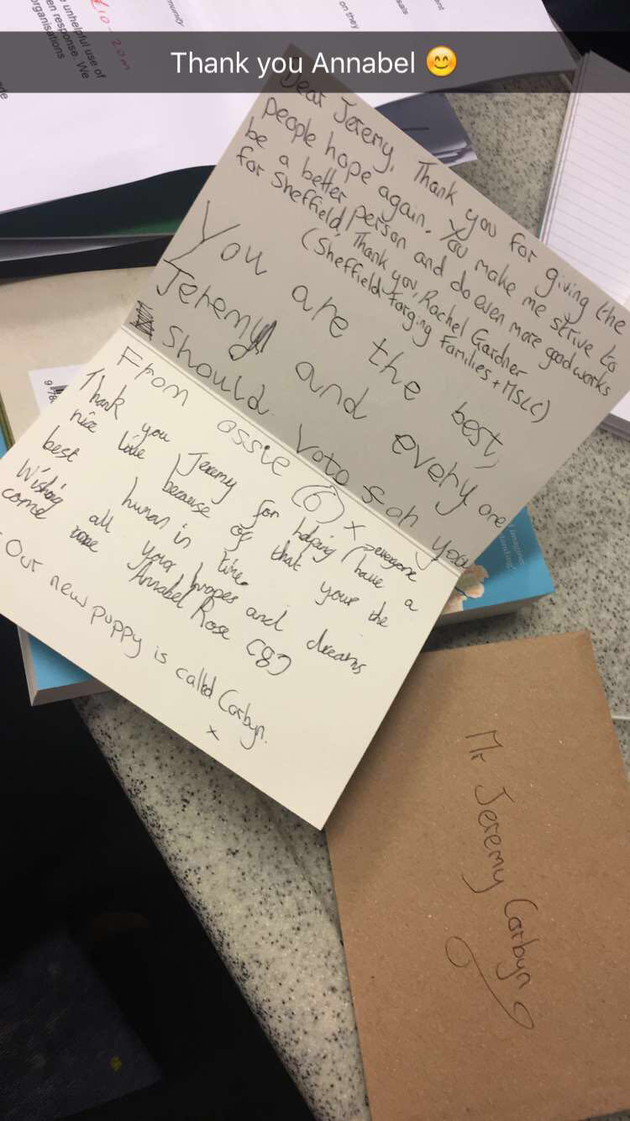 Thank you Annabel 😊
Dear Jeremy, Thank you for giving the
people hope again. You make me strive to
be a better person and do even more good works
for Sheffield! Thank you, Rachel Gardner
(Sheffield Forging Families + MSLC)
You are the best,
Jeremy and every one
should. Vote for you
From ossie (6) x
Thank you Jeremy for helping everyone have a
nice life because of that your the
best human in time.
Wishing all your hopes and dreams
come
Annabel Rose (8)
Our new puppy is called Corbyn.
x
Mr Jeremy Corbyn
£10-20m
unhelpful use of
en response. We
organisations
on they